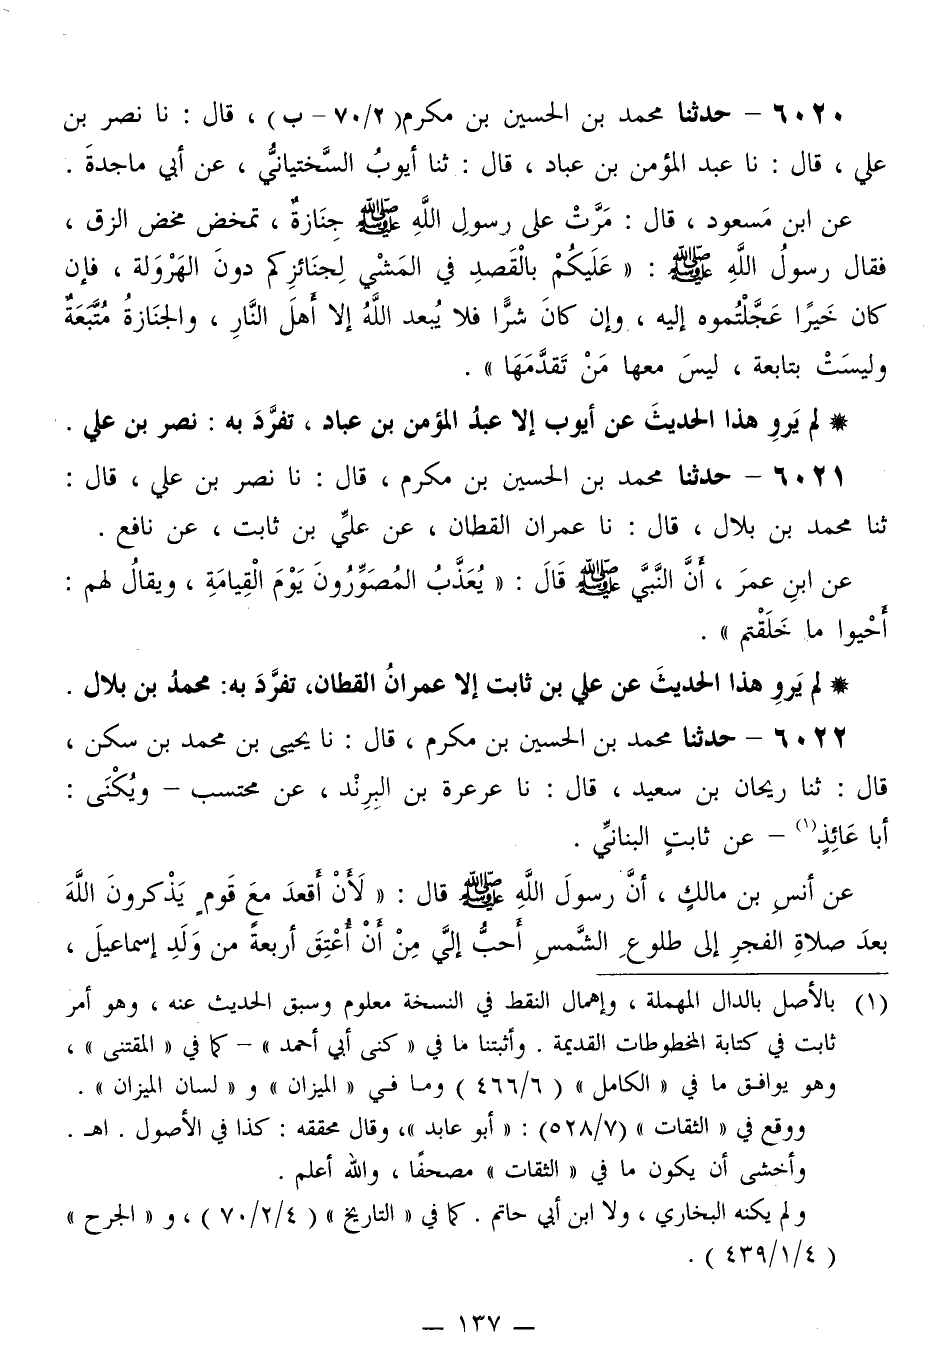 ٦٠٢٠ – حدثنا محمد بن الحسين بن مكرم( ٧٠/٢ – ب ) ، قال : نا نصر بن
علي ، قال : نا عبد المؤمن بن عباد ، قال : ثنا أيوبُ السَّختيانيُّ ، عن أبي ماجدةَ .
عن ابن مَسعود ، قال : مَرَّتْ على رسولِ اللَّهِ ﷺ جِنَازةٌ ، تمخض مخض الزق ،
فقال رسولُ اللَّهِ ﷺ : « عَلَيكُمْ بالْقَصدِ في المَشْي لِجنَائزِكم دونَ الهَرْوَلة ، فإن
كان خَيرًا عَجَّلْتُموه إليه ، وإن كانَ شرًّا فلا يُبعد اللَّهُ إلا أَهلَ النَّارِ ، والجنَازةُ مُتَّبَعَةٌ
وليسَتْ بتابعة ، ليسَ معها مَنْ تَقدَّمَهَا » .
* لم يَروِ هذا الحديثَ عن أيوب إلا عبدُ المؤمن بن عباد ، تفرَّدَ به : نصر بن علي .
٦٠٢١ – حدثنا محمد بن الحسين بن مكرم ، قال : نا نصر بن علي ، قال :
ثنا محمد بن بلال ، قال : نا عمران القطان ، عن عليِّ بن ثابت ، عن نافع .
عن ابنِ عمرَ ، أَنَّ النَّبيَّ ﷺ قَالَ : « يُعَذَّبُ المُصَوِّرُونَ يَوْمَ الْقِيامَةِ ، ويقالُ لهم :
أَحْيوا ما خَلَقْتم » .
* لم يَروِ هذا الحديثَ عن علي بن ثابت إلا عمرانُ القطان، تفرَّدَ به: محمدُ بن بلال .
٦٠٢٢ – حدثنا محمد بن الحسين بن مكرم ، قال : نا يحيى بن محمد بن سكن ،
قال : ثنا ريحان بن سعيد ، قال : نا عرعرة بن البِرِنْد ، عن محتسب – ويُكْنَى :
أبا عَائِذٍ(١) – عن ثابتٍ البنانيِّ .
عن أنسِ بن مالكٍ ، أنَّ رسولَ اللَّهِ ﷺ قال : « لَأَنْ أَقعدَ معَ قَومٍ يَذْكرونَ اللَّهَ
بعدَ صلاةِ الفجرِ إلى طلوعِ الشَّمسِ أَحبُّ إليَّ مِنْ أَنْ أُعْتِقَ أربعةً من وَلَدِ إسماعيلَ ،
(١) بالأصل بالدال المهملة ، وإهمال النقط في النسخة معلوم وسبق الحديث عنه ، وهو أمر
ثابت في كتابة المخطوطات القديمة . وأثبتنا ما في « كنى أبي أحمد » – كما في « المقتنى » ،
وهو يوافق ما في « الكامل » ( ٤٦٦/٦ ) وما في « الميزان » و « لسان الميزان » .
ووقع في « الثقات » (٥٢٨/٧) : « أبو عابد »، وقال محققه : كذا في الأصول . اهـ .
وأخشى أن يكون ما في « الثقات » مصحفًا ، والله أعلم .
ولم يكنه البخاري ، ولا ابن أبي حاتم . كما في « التاريخ » ( ٧٠/٢/٤ ) ، و « الجرح »
( ٤٣٩/١/٤ ) .
– ١٣٧ –